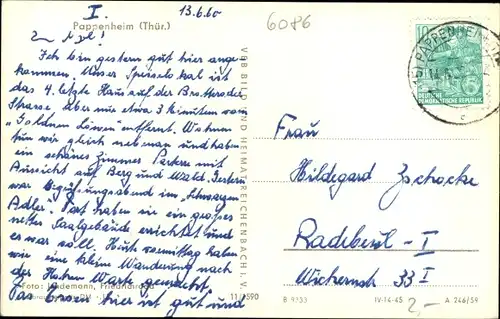 I. 13.6.60
6086
Pappenheim (Thür.)
Ich bin gestern gut hier ange
kommen. Unser Speiselokal ist
das 4. letzte Haus auf der Brotteroder
Strasse aber nur etwa 3 Minuten vom
"Goldnen Löwen" entfernt. Wohnen
tun wir gleich nebenan und haben
ein schönes Zimmer Parterre mit
Aussicht auf Berg und Wald. Gestern
war Begrüßungsabend im "Schwarzen
Adler". Dort haben sie ein großes
nettes Saalgebäude errichtet und
es war voll. Heute vormittag haben
wir eine kleine Wanderung nach
der Hohen Warte gemacht.
Das Essen hier ist gut und
Foto:
11/ 590
VEB BILD UND HEIMAT REICHENBACH I. V.
PAPPENHEIM
10
DEUTSCHE
DEMOKRATISCHE REPUBLIK
Frau
Hildegard Zschocke
Radebeul - I
Wichernstr. 33 I
B 9333 IV-14-45 2,- A 246/59